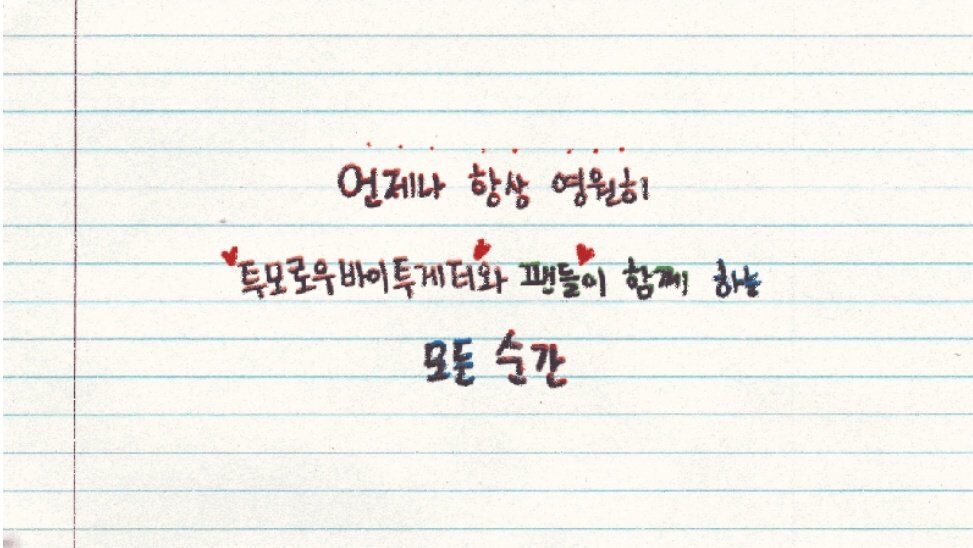 언제나 항상 영원히
투모로우바이투게더와 팬들이 함께 하는
모든 순간